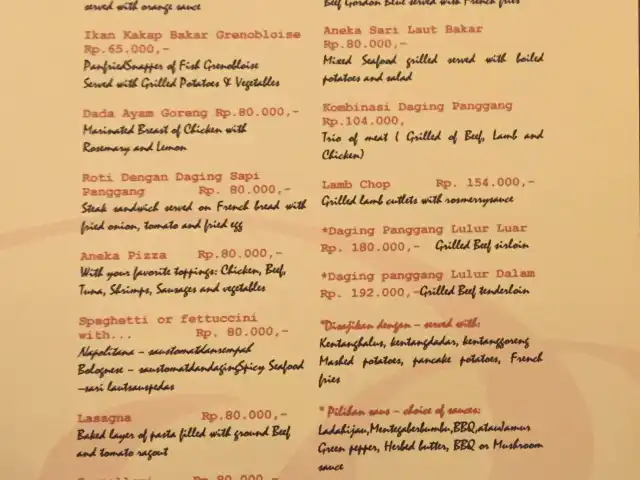 served with orange sauce
Ikan Kakap Bakar Grenobloise
Rp.65.000,-
PanfriedSnapper of Fish Grenobloise
Served with Grilled Potatoes & Vegetables
Dada Ayam Goreng Rp.80.000,-
Marinated Breast of Chicken with
Rosemary and Lemon
Roti Dengan Daging Sapi
Panggang Rp. 80.000,-
Steak sandwich served on French bread with
fried onion, tomato and fried egg
Aneka Pizza Rp.80.000,-
With your favorite toppings: Chicken, Beef,
Tuna, Shrimps, Sausages and vegetables
Spaghetti or fettuccini
with... Rp. 80.000,-
Napolitana – saustomatdanrempah
Bolognese – saustomatdandagingSpicy Seafood
–sari lautsauspedas
Lasagna Rp.80.000,-
Baked layer of pasta filled with ground Beef
and tomato ragout
Beef Gordon Blue served with French fries
Aneka Sari Laut Bakar
Rp.80.000,-
Mixed Seafood grilled served with boiled
potatoes and salad
Kombinasi Daging Panggang
Rp.104.000,
Trio of meat ( Grilled of Beef, Lamb and
Chicken)
Lamb Chop Rp. 154.000,-
Grilled lamb cutlets with rosmerrysauce
*Daging Panggang Lulur Luar
Rp. 180.000,- Grilled Beef sirloin
*Daging panggang Lulur Dalam
Rp. 192.000,-Grilled Beef tenderloin
*Disajikan dengan – served with:
Kentanghalus, kentangdadar, kentanggoreng
Mashed potatoes, pancake potatoes, French
fries
* Pilihan saus – choice of sauces:
Ladahijau,Mentegaberbumbu,BBQ,atauJamur
Green pepper, Herbed butter, BBQ or Mushroom
sauce